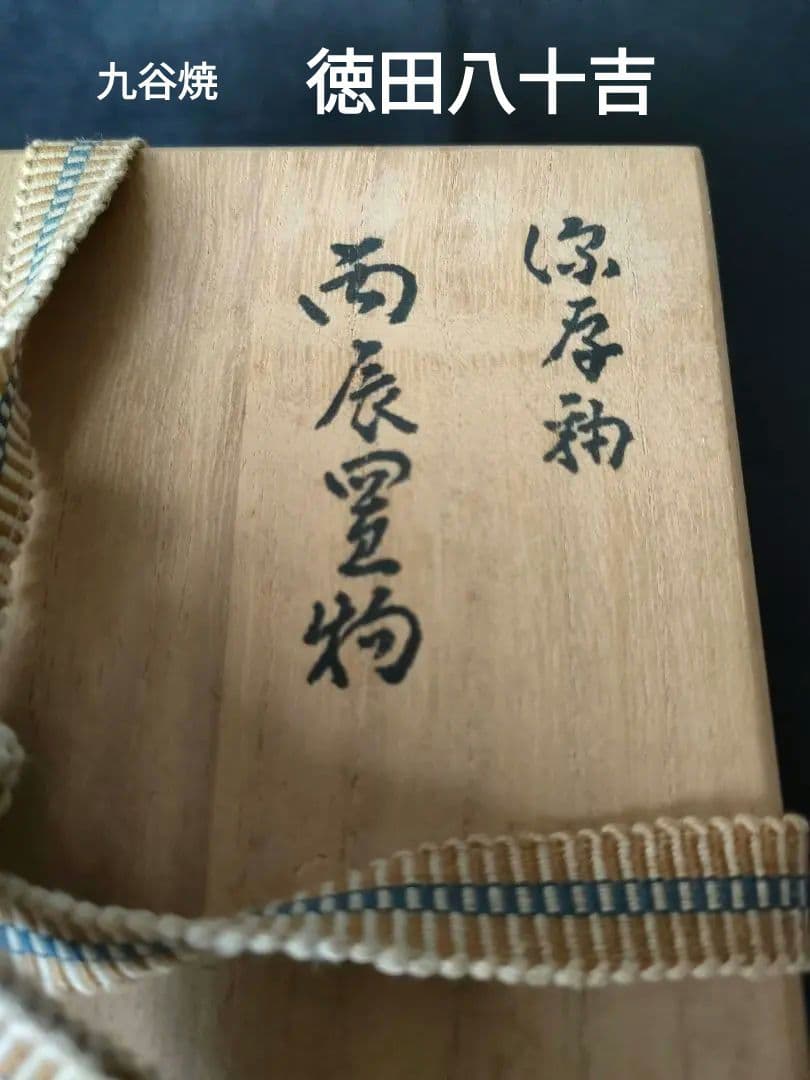 九谷焼 徳田八十吉
深厚釉
丙辰置物